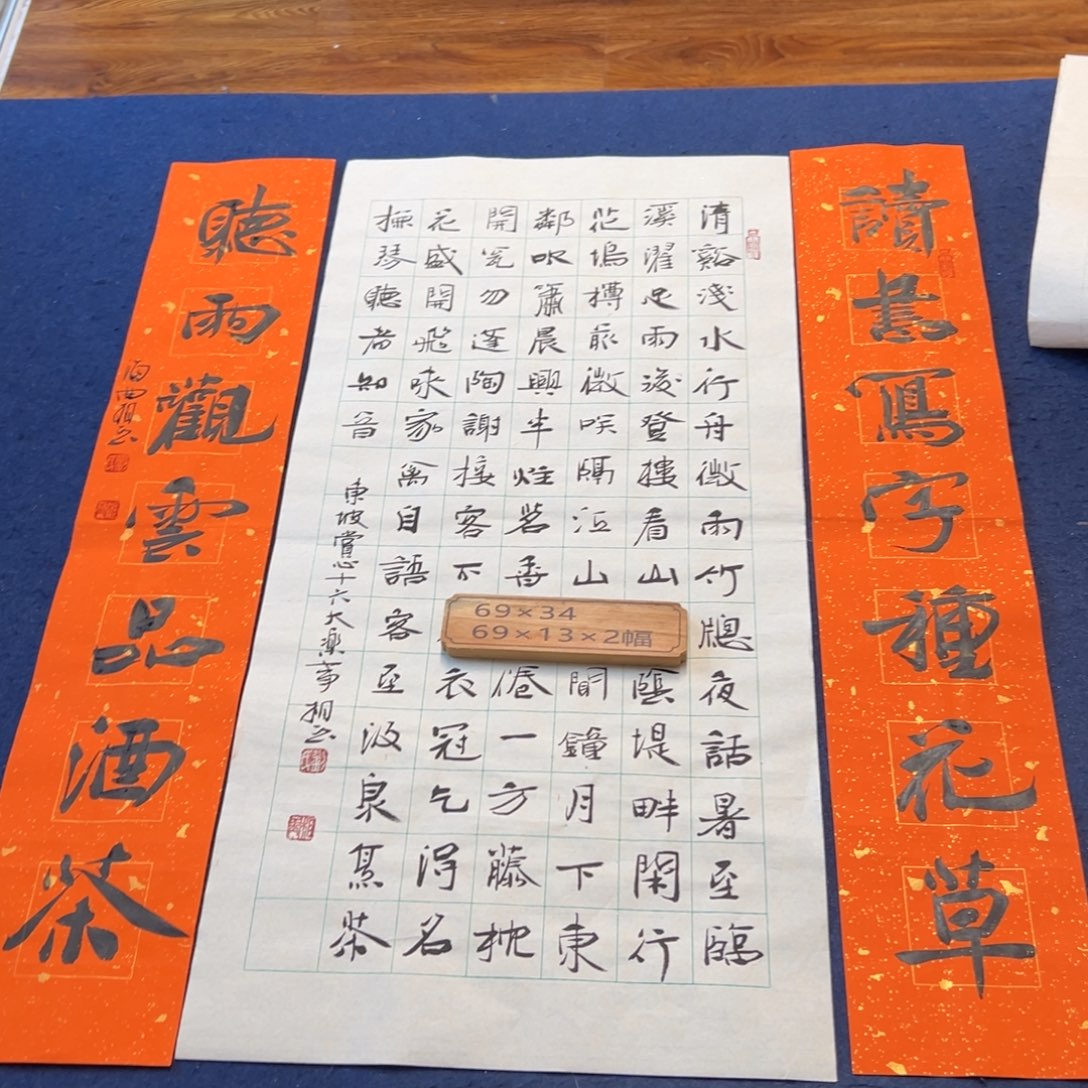 讀書寫字種花草
清谿淺水行舟微雨竹牕夜話暑至臨
溪濯足雨後登樓看山隂堤畔閑行
花塢樽前微咲隔江山聞鐘月下東
鄰吹簫晨興半炷茗香倦一方藤枕
開瓮勿逢陶謝接客不衣冠乞得名
花盛開飛來家禽自語客至汲泉烹茶
撫琴聽者知音
東坡賞心十六大樂事
聽雨觀雲品酒茶
69×34
69×13×2幅